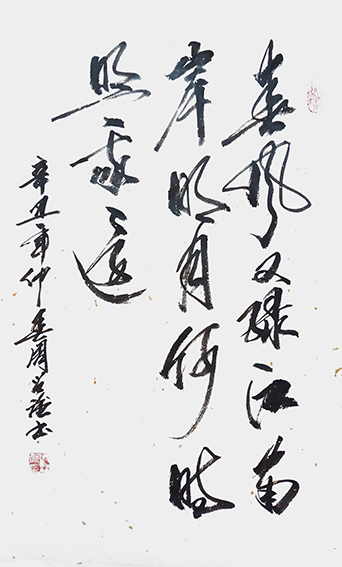 春风又绿江南
岸明月何时
照我还
辛丑年仲春周